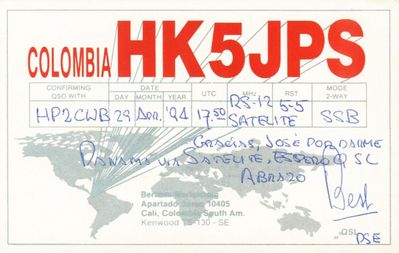 COLOMBIA HK5JPS
CONFIRMING QSO WITH DATE DAY MONTH YEAR UTC MHz RST MODE 2-WAY
HP2CWB 29 Apr. '94 17:50 RS-12 SATELITE 55 SSB
GRACIAS, JOSÉ POR DARME
PANAMA VIA SATELITE, ESPERO QSL
ABRAZO
Apartado Aereo 10405
Cali, Colombia South Am.
Kenwood TS-130 - SE
QSL
PSE